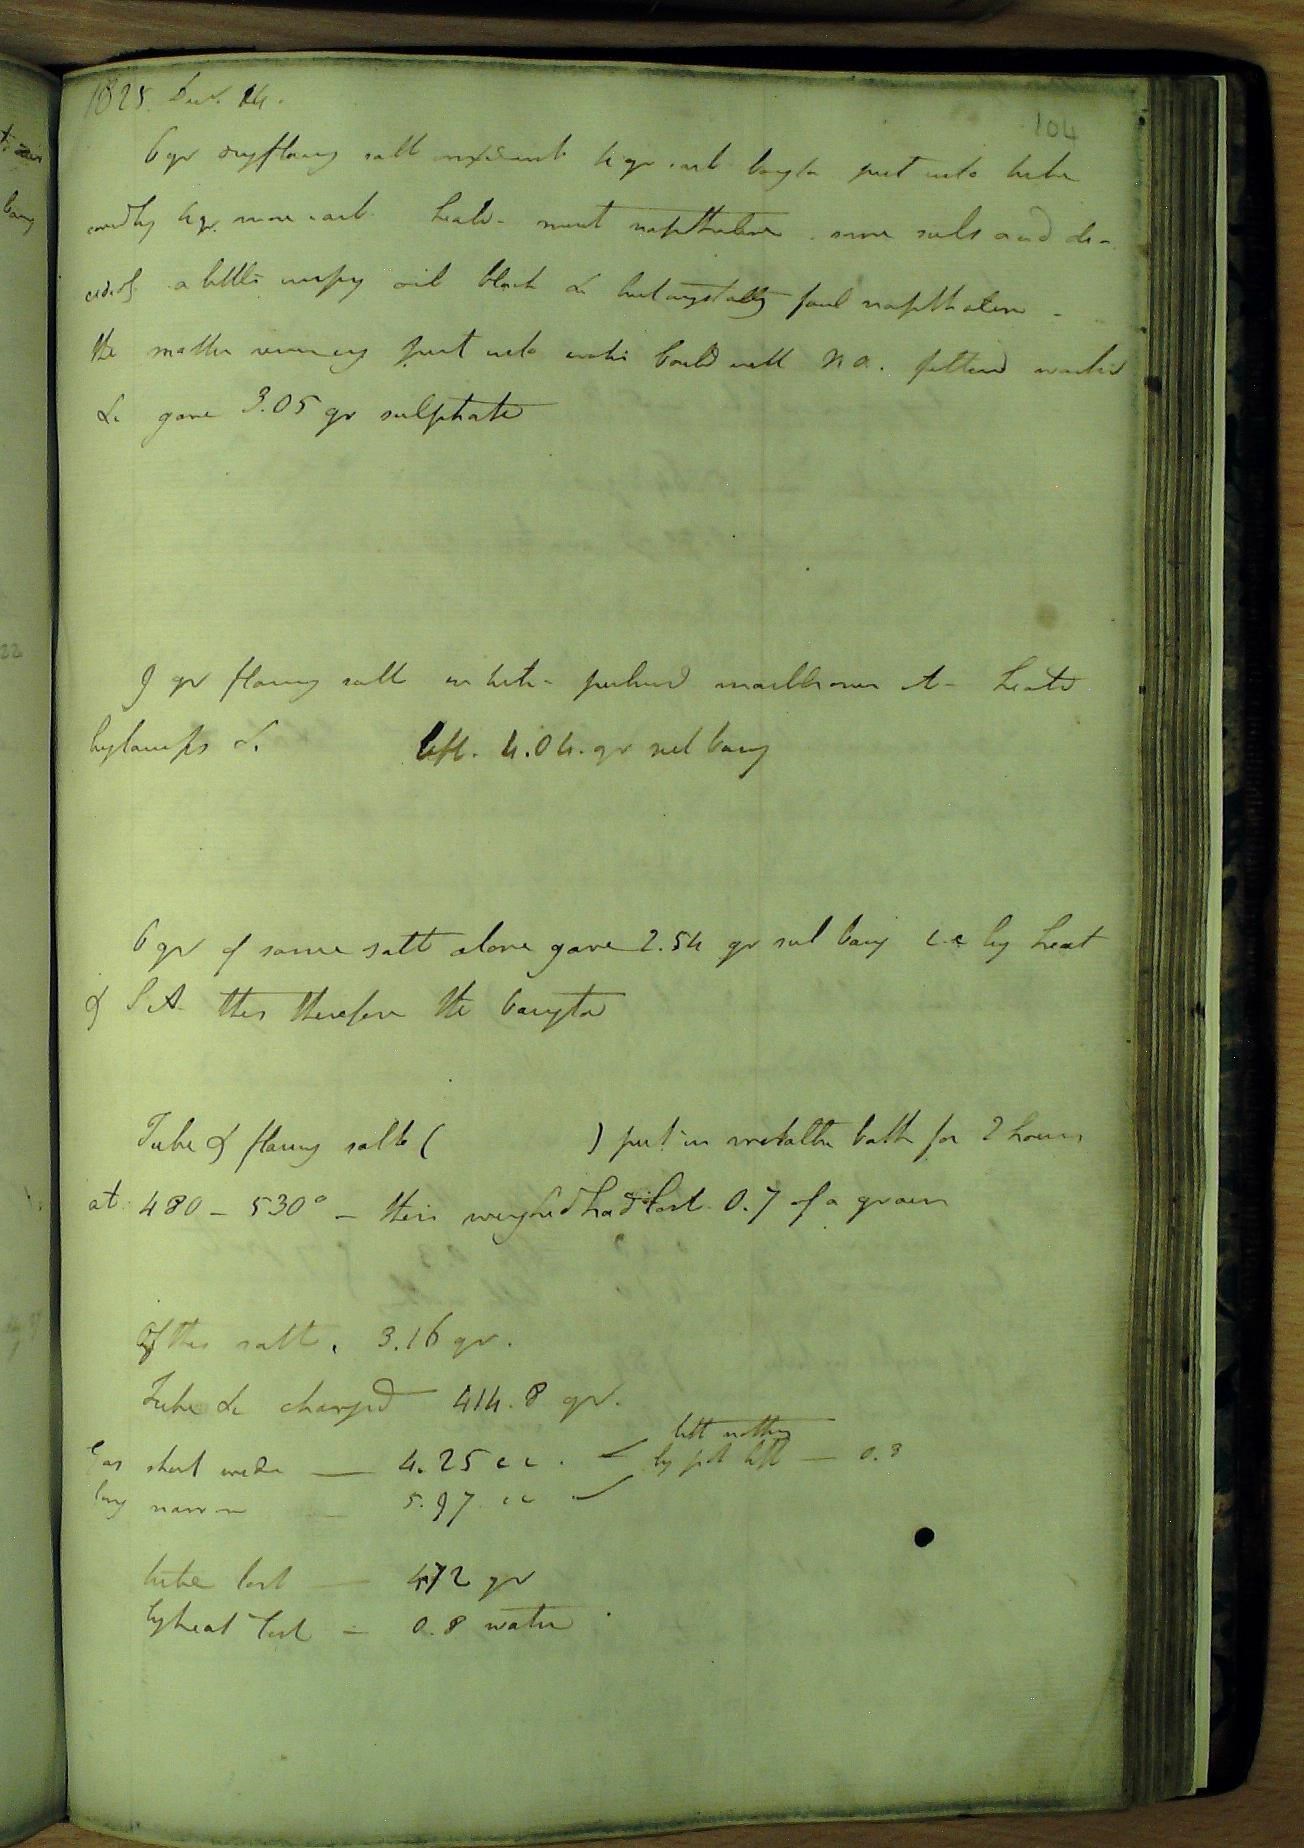 1825 Dec. 14.
104
6 gr dry flamg salt mixed with 4 gr carb baryta put into tube
covered by 4 gr. more carb. heated - much napthaline. some sul acid de-
cidedly a little crispy oil black & but crystally foul napthaline -
the matter remaing put into water boild well N A. filtered washed
& gave 3.05 gr sulphate
9 gr flamg salt in tube - heated
by lamps &. left. 4.04. gr sul bary
6 gr of same salt alone gave 2.54 gr sul bary i.e by heat
& S A this therefore the baryta
Tube & flamg salt ( ) put in metallic bath for 2 hours
at 480 - 530° - then weighed had lost 0.7 of a grain
Of this salt. 3.16 gr.
Tube &c charged 414.8 gr.
left nothing
Gas short wide — 4.25 c c. by pot left — 0.3
long narrow — 5.97 c c
tube lost — 472 gr
by heat lost — 0.8 water
bary
22